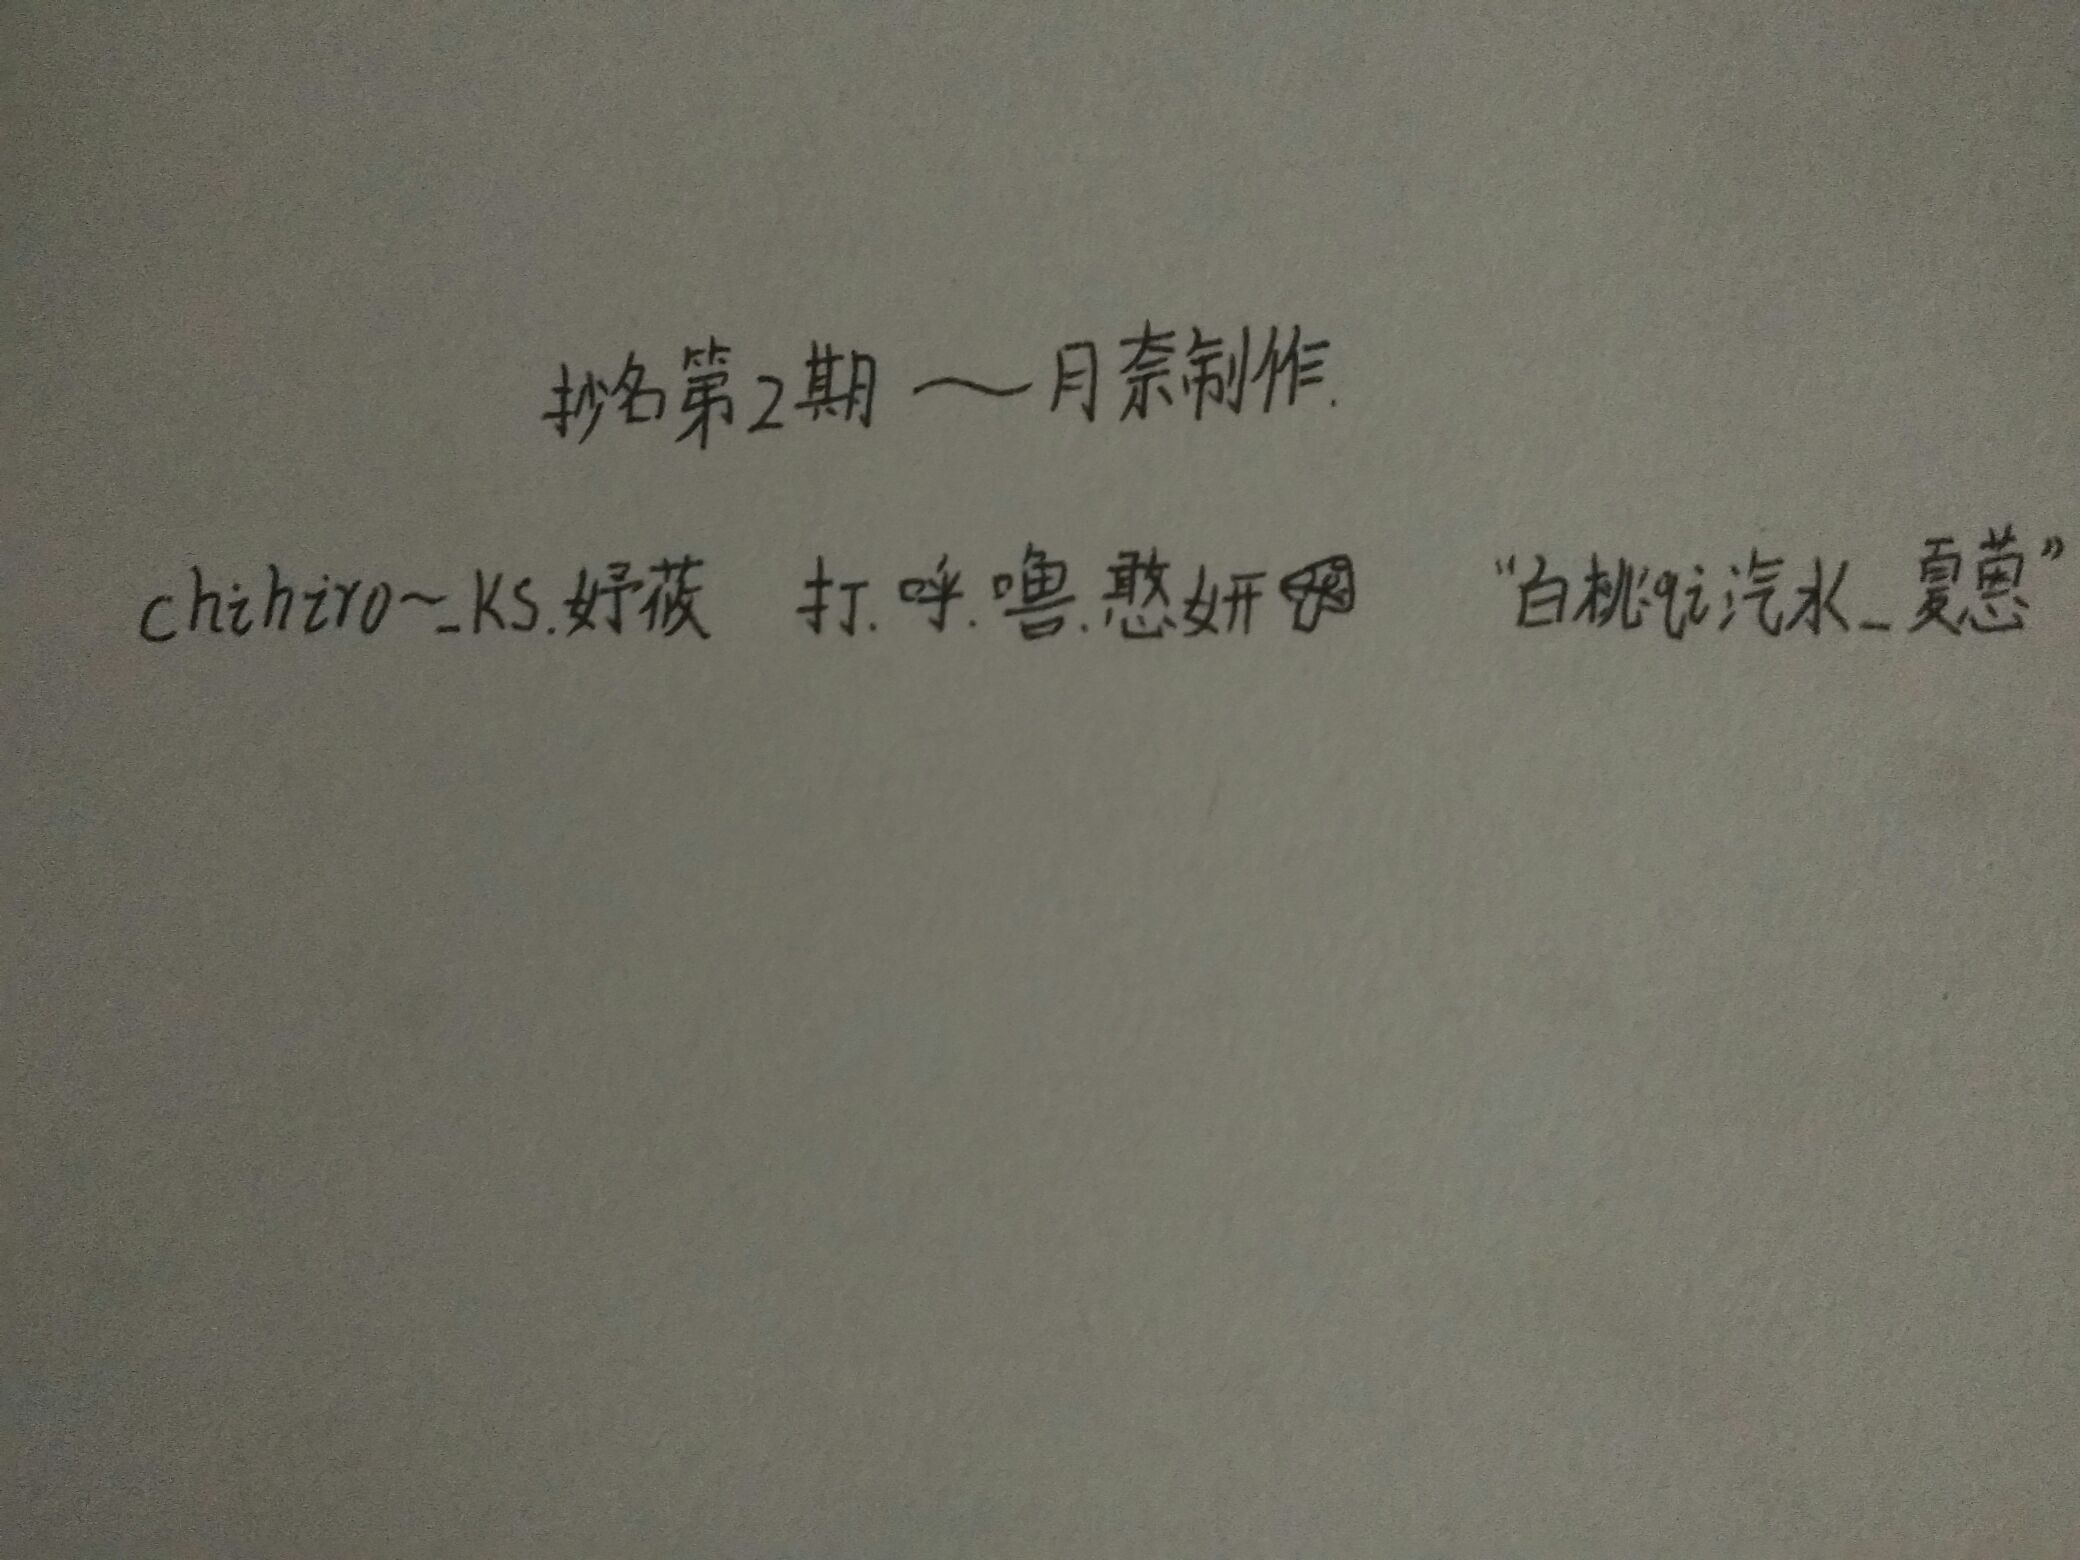 抄名第2期 ～月奈制作.
chihiro~_KS.妤莜 打.呼.噜.憨妍 “白桃qi汽水_夏蒽”